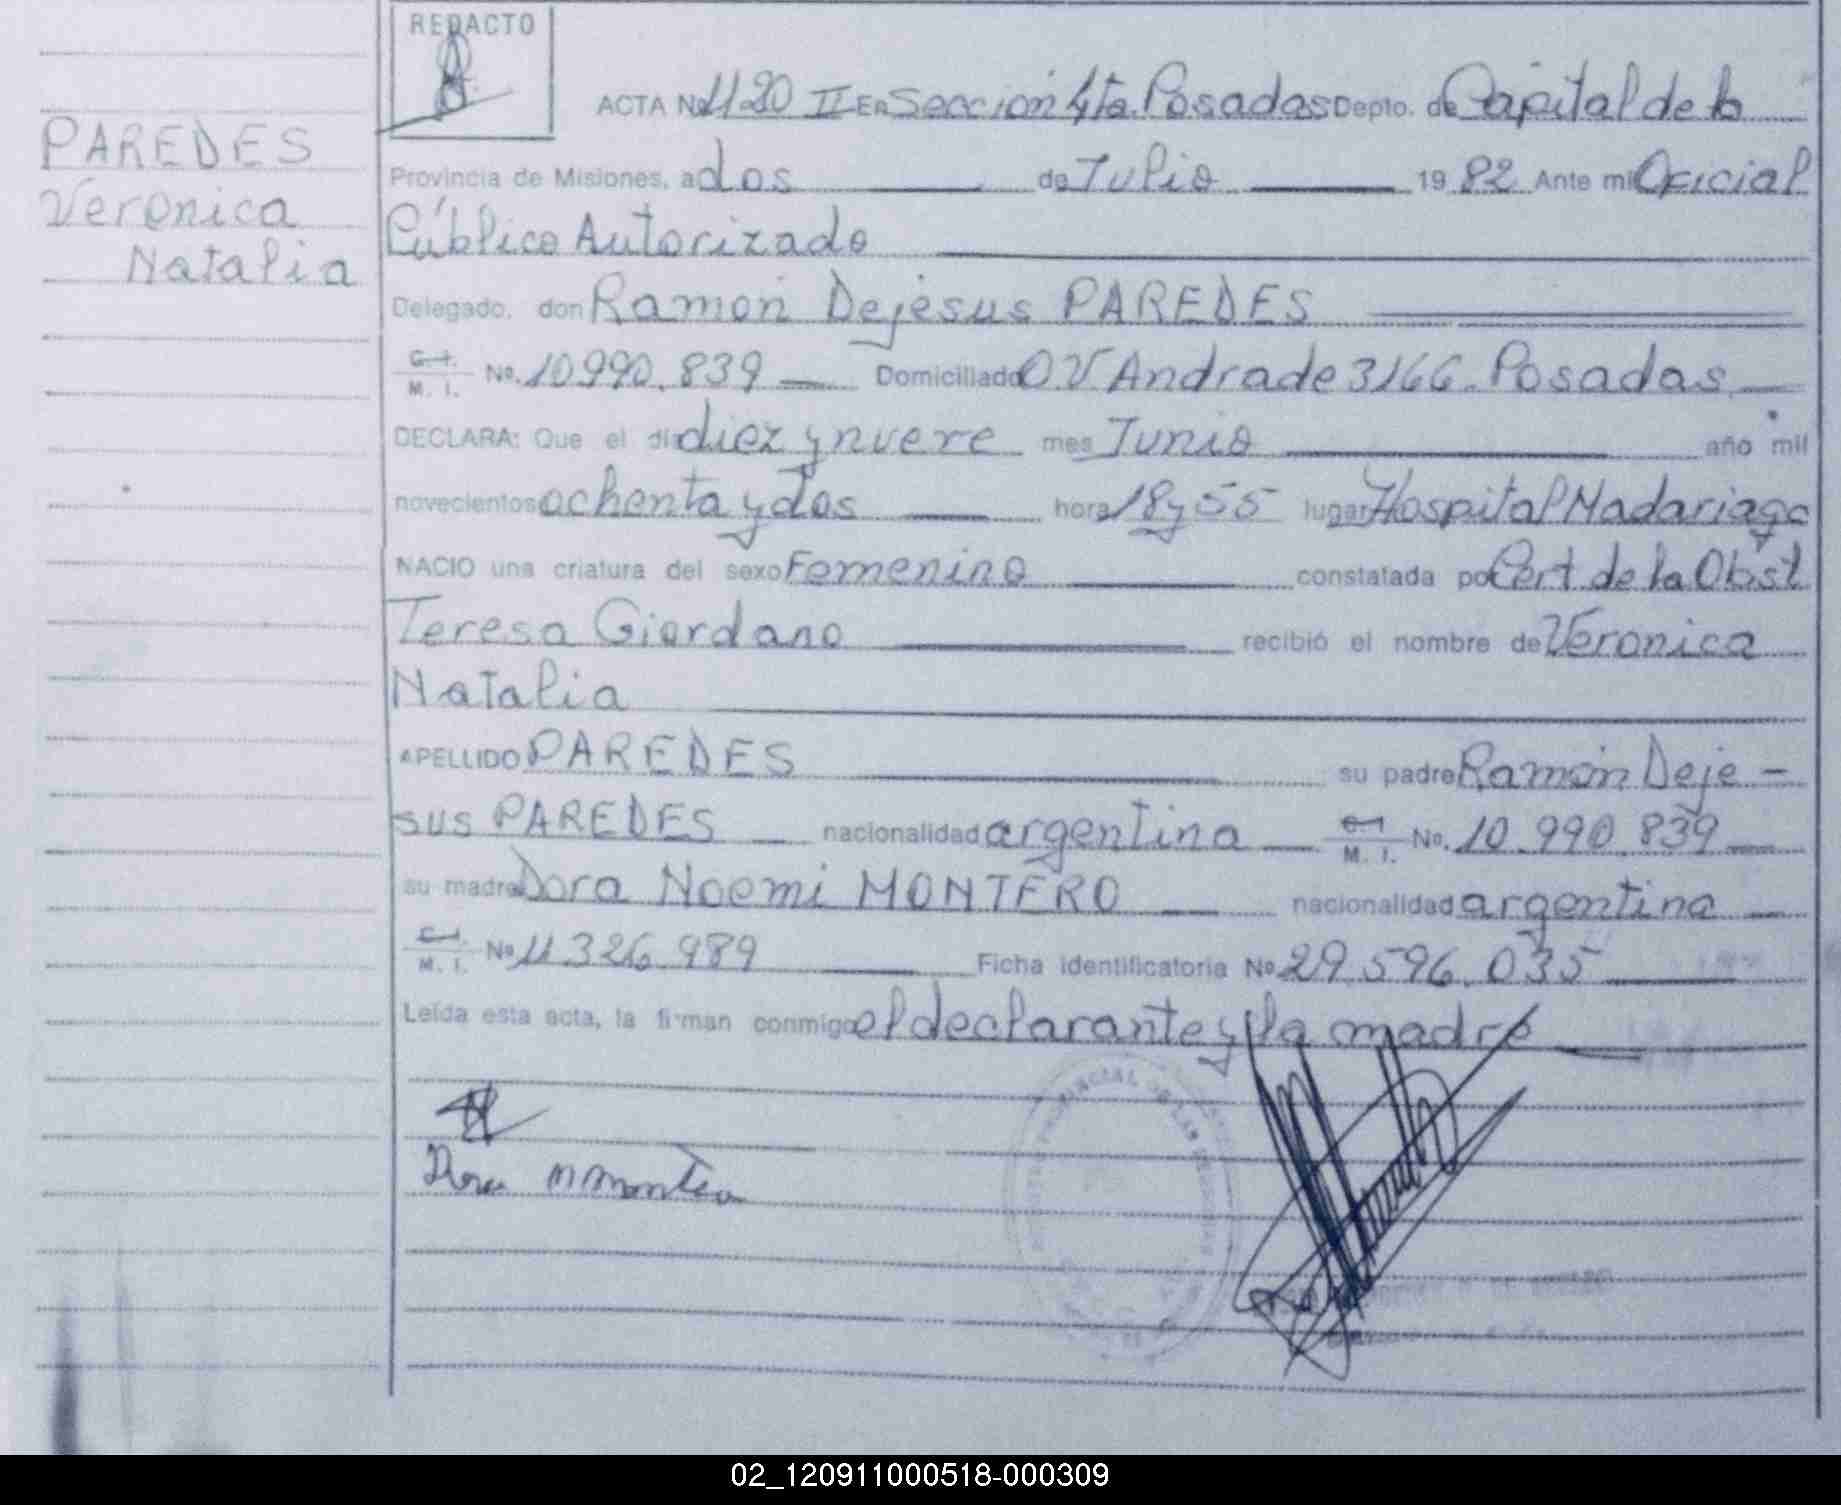 REDACTO
ACTA No 1120 II En Seccion 4ta. Posadas Depto. de Capital de la
PAREDES
Veronica
Natalia
Provincia de Misiones, a dos de Julio 1982 Ante mi Oficial
Público Autorizado
Delegado, don Ramon Dejesus PAREDES
C. I. M. I. No. 10.990.839 Domiciliado O V Andrade 3166. Posadas
DECLARA: Que el día diez y nueve mes Junio año mil
novecientos ochenta y dos hora 18 y 55 lugar Hospital Madariaga
NACIO una criatura del sexo Femenino constatada por Cert. de la Obst
Teresa Giordano recibió el nombre de Veronica
Natalia
APELLIDO PAREDES su padre Ramon Deje -
sus PAREDES nacionalidad argentina C. I. M. I. No. 10.990.839
su madre Dora Noemi MONTERO nacionalidad argentina
C. I. M. I. No 11.326.989 Ficha identificatoria No 29.596.035
Leída esta acta, la firman conmigo el declarante y la madre
Dora N Montero
02_120911000518-000309